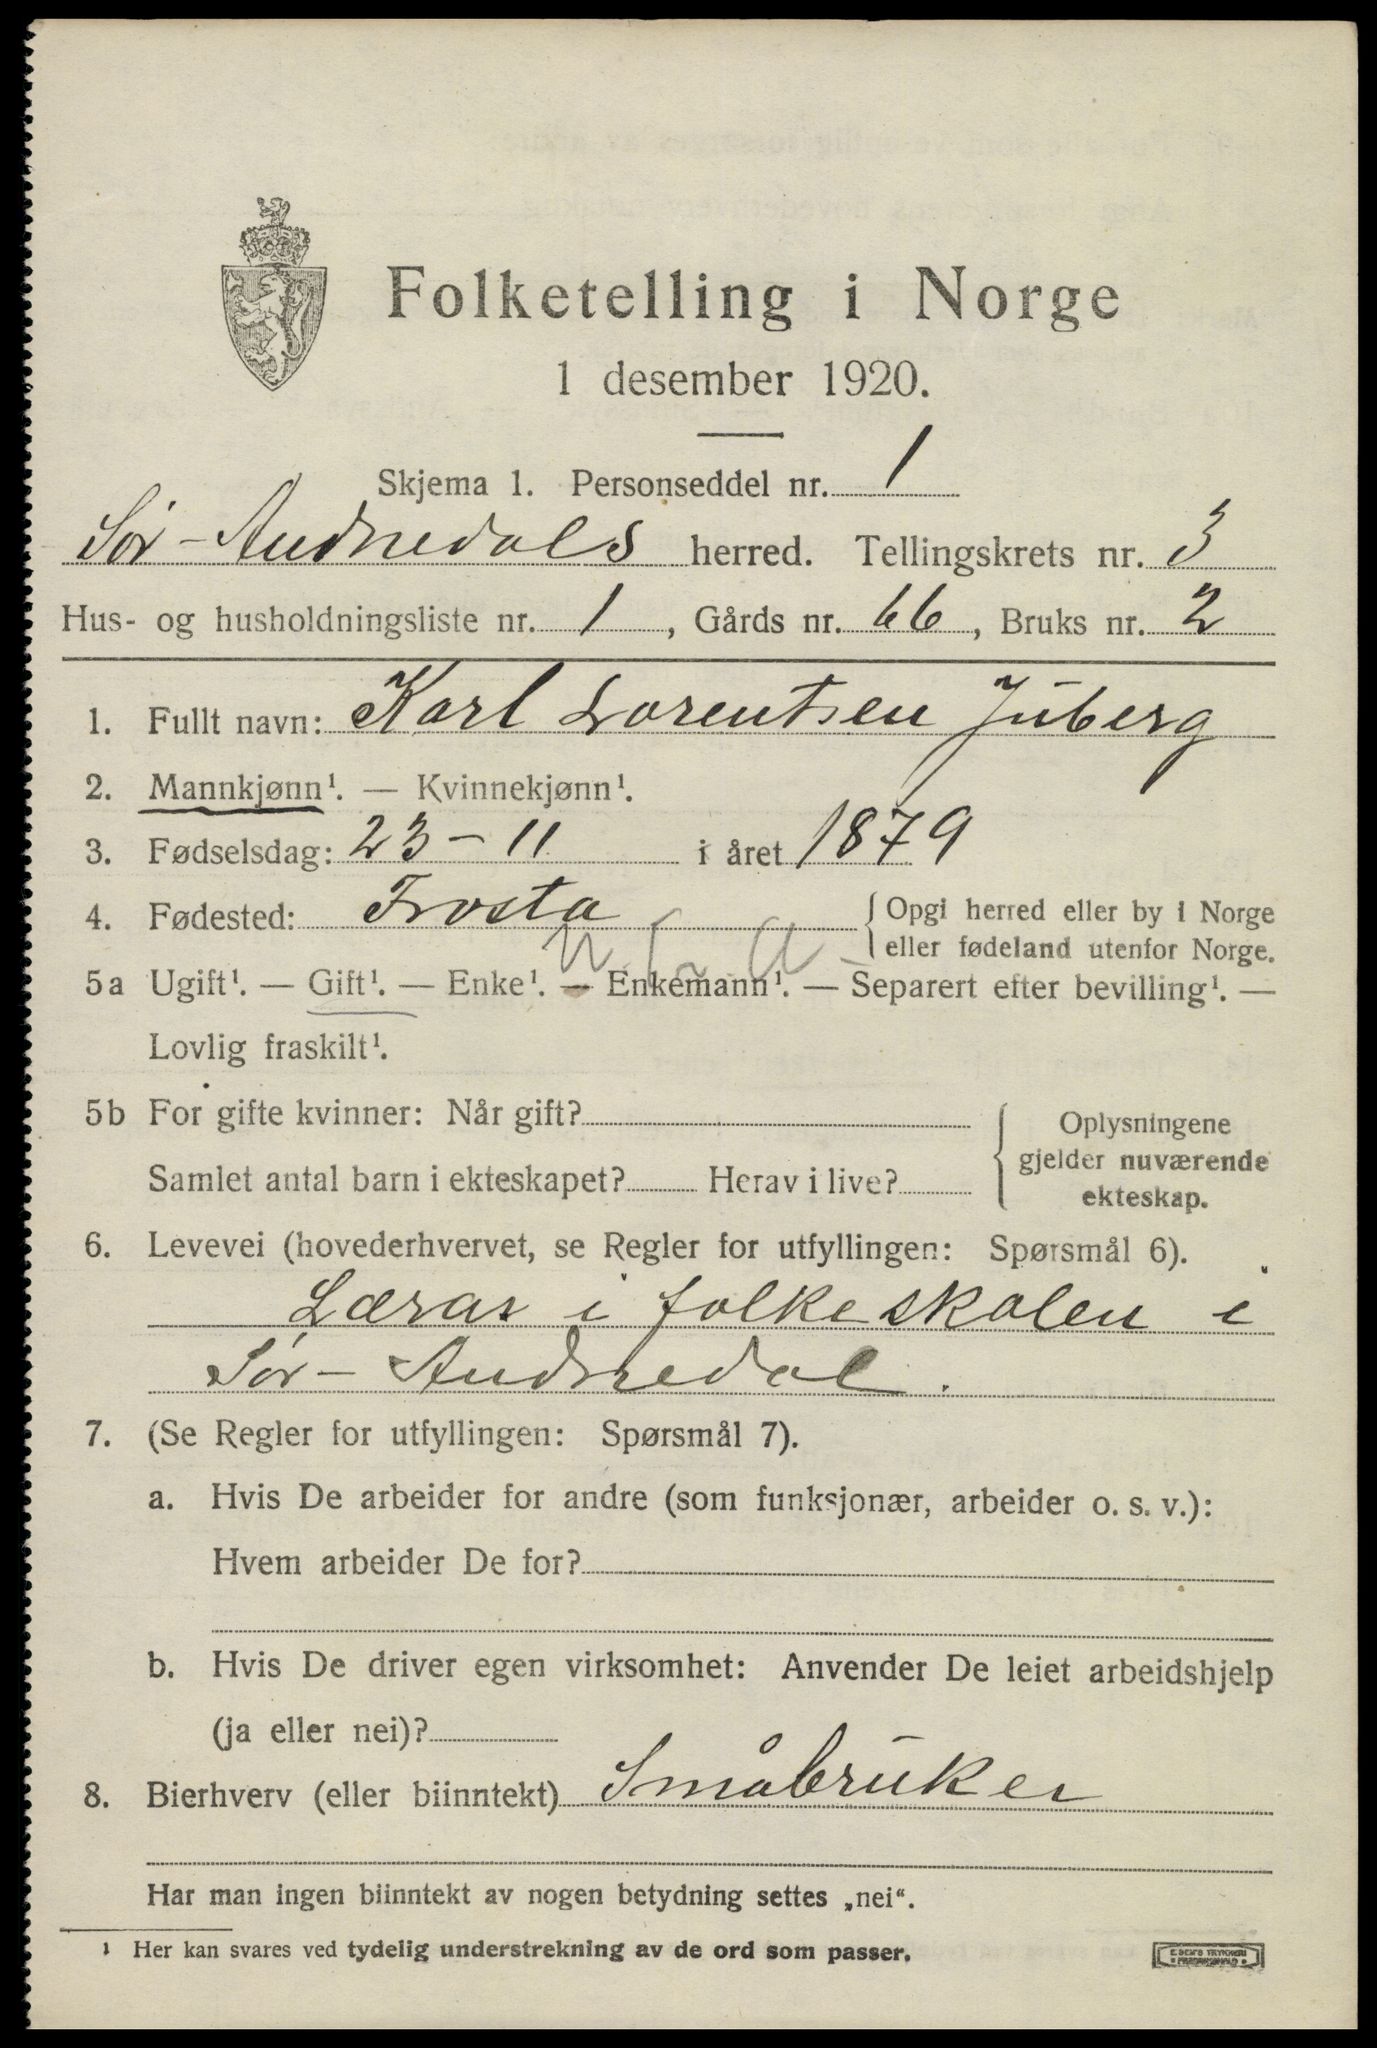 Folketelling i Norge
1 desember 1920.
Skjema 1. Personseddel nr. 1
Sør-Audnedals herred. Tellingskrets nr. 3
Hus- og husholdningsliste nr. 1, Gårds nr. 66, Bruks nr. 2
1. Fullt navn: Karl Lorentsen Juberg
2. Mannkjønn¹. — Kvinnekjønn¹.
3. Fødselsdag: 23-11 i året 1879
4. Fødested: Frosta { Opgi herred eller by i Norge
eller fødeland utenfor Norge.
5a Ugift¹. — Gift¹. — Enke¹. — Enkemann¹. — Separert efter bevilling¹. —
Lovlig fraskilt¹.
5b For gifte kvinner: Når gift?
Samlet antal barn i ekteskapet? Herav i live?
{ Oplysningene
gjelder nuværende
ekteskap.
6. Levevei (hovederhvervet, se Regler for utfyllingen: Spørsmål 6).
Lærar i folkeskolen i
Sør-Audnedal.
7. (Se Regler for utfyllingen: Spørsmål 7).
a. Hvis De arbeider for andre (som funksjonær, arbeider o. s. v.):
Hvem arbeider De for?
b. Hvis De driver egen virksomhet: Anvender De leiet arbeidshjelp
(ja eller nei)?
8. Bierhverv (eller biinntekt) Småbruker
Har man ingen biinntekt av nogen betydning settes „nei“.
¹ Her kan svares ved tydelig understrekning av de ord som passer.